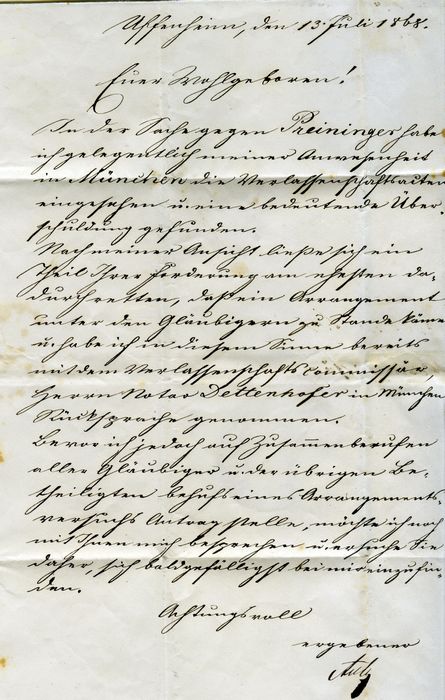 Uffenheim, den 13. Juli 1868.
Euer Wohlgeboren!
In der Sache gegen Preininger habe
ich gelegentlich meiner Anwesenheit
in München die Verlassenschaftsacten
eingesehen u. eine bedeutende Über
schuldung gefunden.
Nach meiner Ansicht ließe sich ein
Theil Ihrer Forderung am ehesten da-
durch retten, daß ein Arrangement
unter den Gläubigern zu Stande käme
u. habe ich in diesem Sinne bereits
mit dem Verlassenschaftscommissär
Herrn Notar Dettenhofer in München
Rücksprache genommen.
Bevor ich jedoch auf Zusammenberufen
aller Gläubiger u. der übrigen Be-
theiligten behufs eines Arrangements-
versuchs Antrag stelle, möchte ich noch
mit Ihnen mich besprechen u. ersuche Sie
daher, sich baldgefälligst bei mir einzufin
den.
Achtungsvoll
ergebener